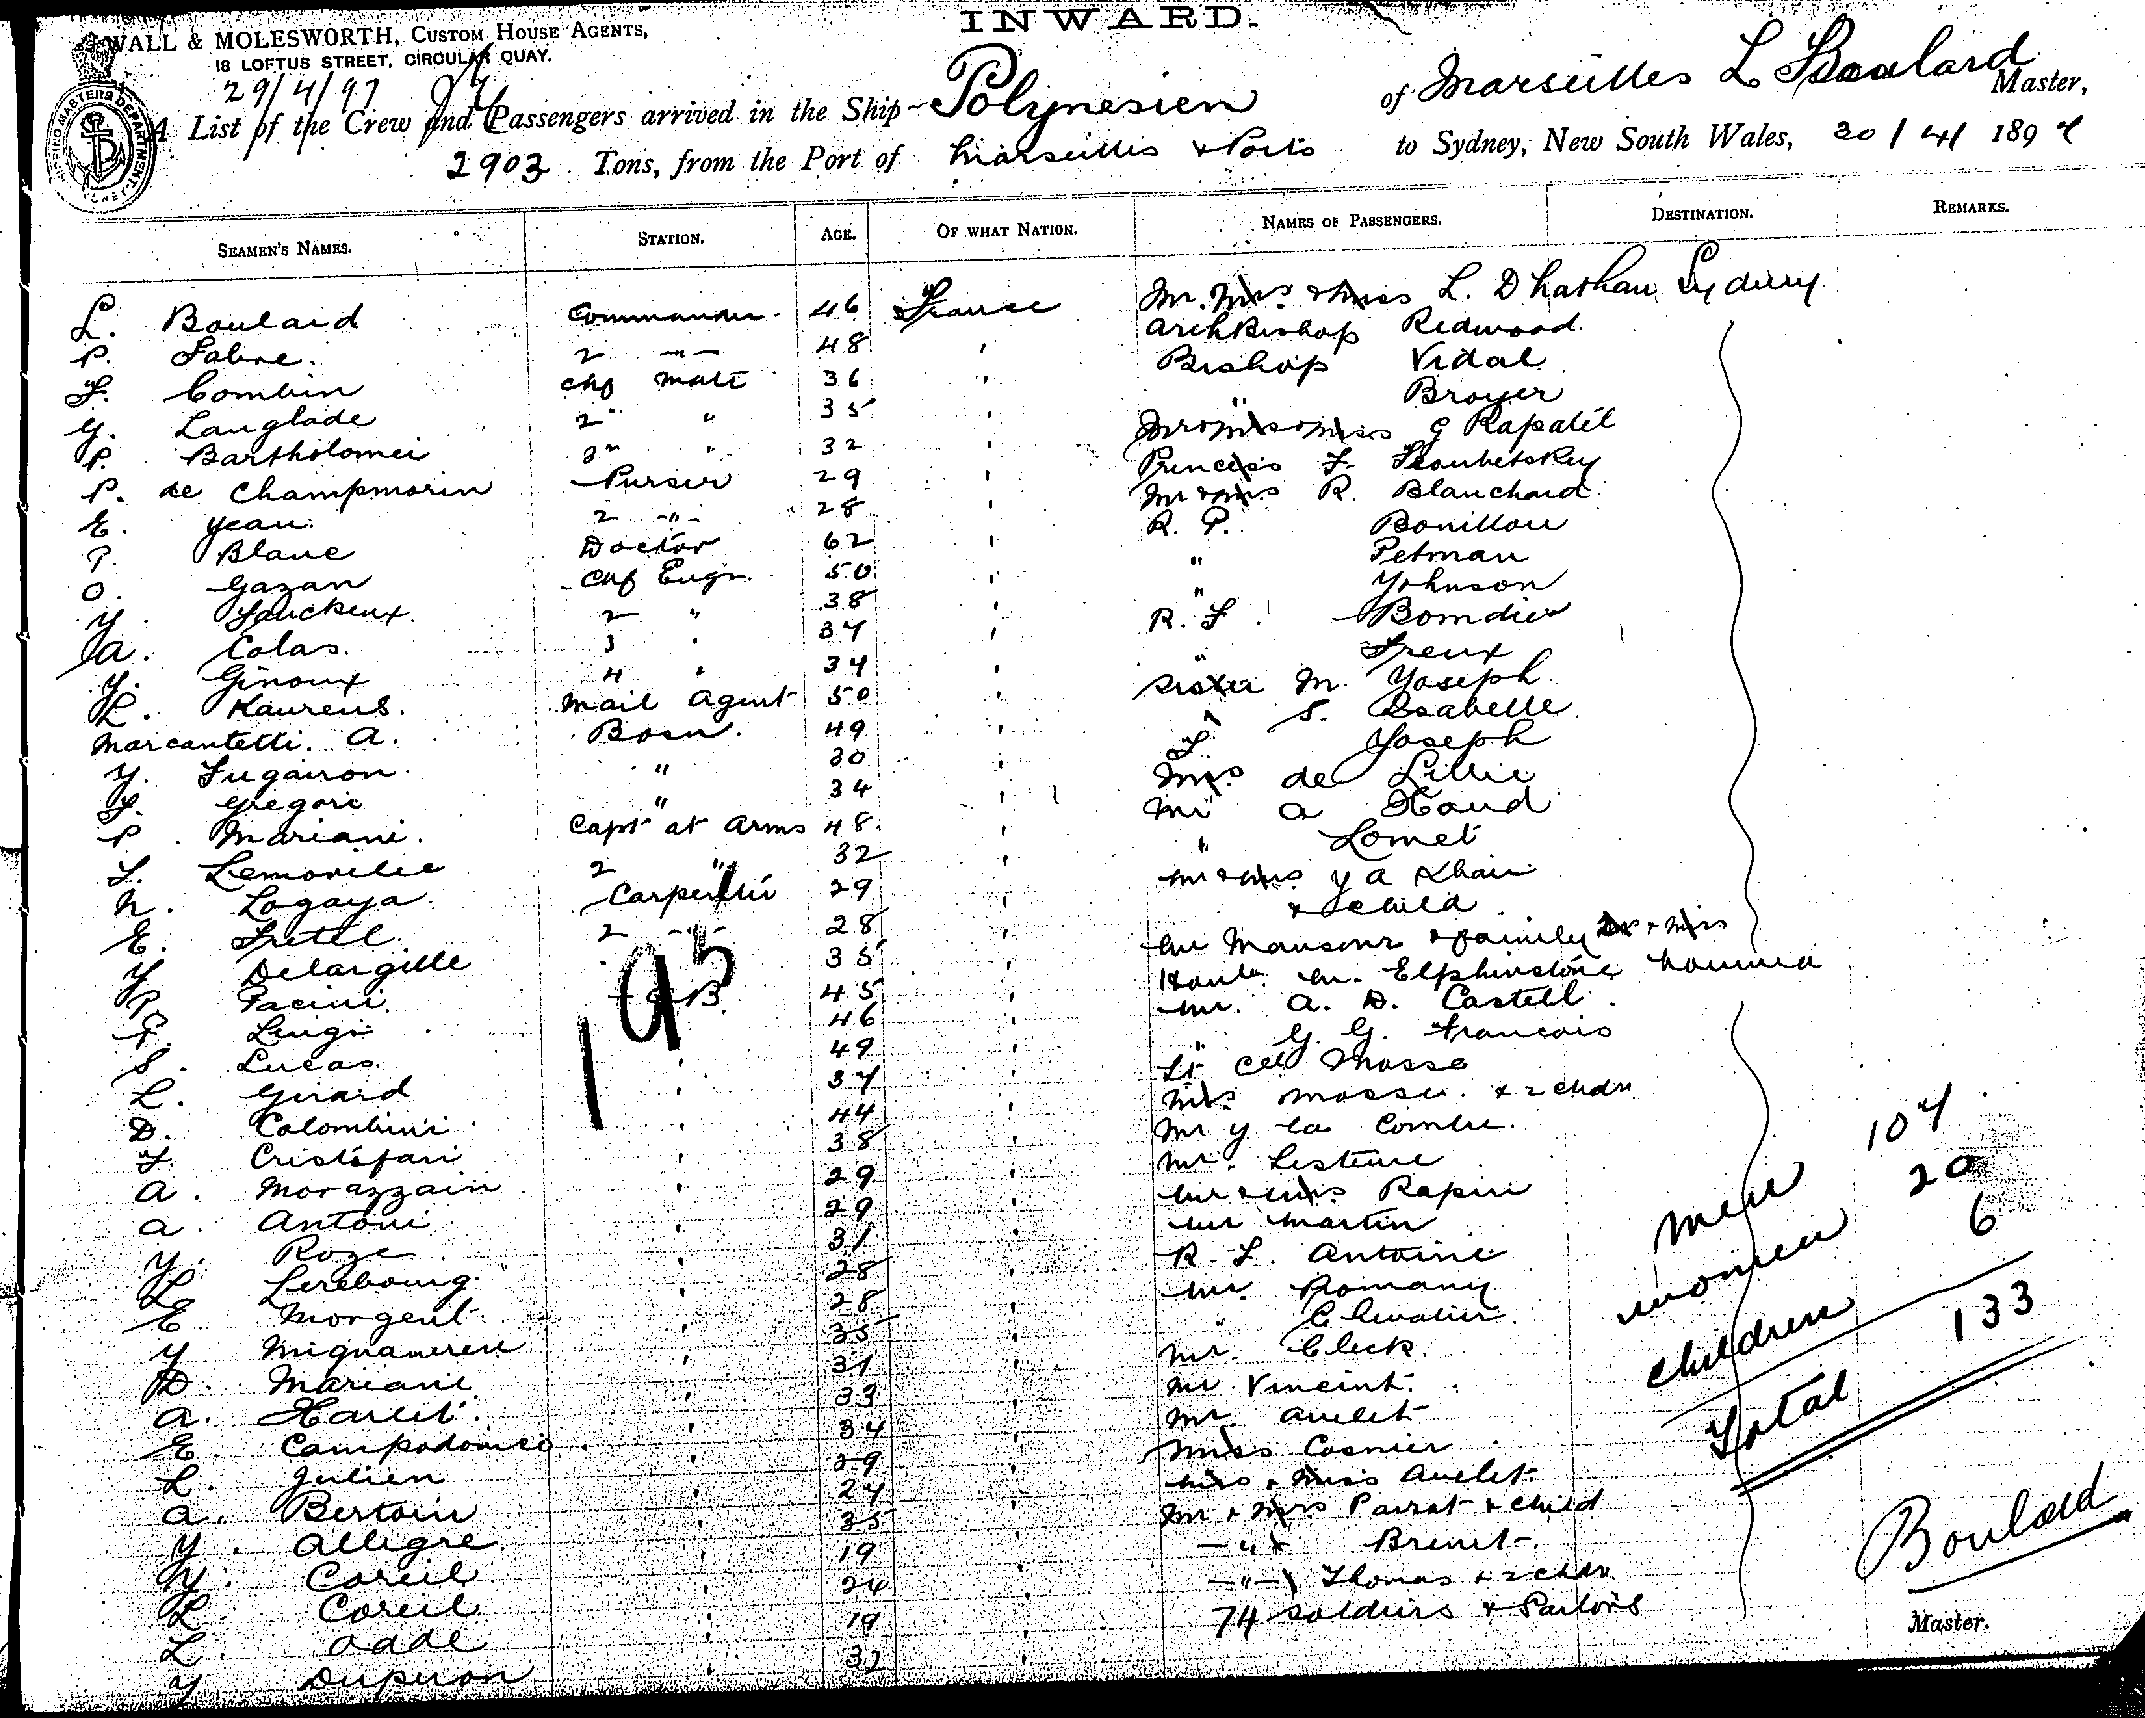 INWARD.
WALL & MOLESWORTH, CUSTOM HOUSE AGENTS,
18 LOFTUS STREET, CIRCULAR QUAY.
29/4/97
A List of the Crew and Passengers arrived in the Ship Polynesien of Marseilles L Boulard Master,
2903 Tons, from the Port of Marseilles & Ports to Sydney, New South Wales, 30/4/ 1897
SEAMEN'S NAMES. STATION. AGE. OF WHAT NATION. NAMES OF PASSENGERS. DESTINATION. REMARKS.
L. Boulard Commander 46 France Mr. Mrs & Miss L. Sydney
P. Fabre. 2 -"- 48 " ArchBishop Redwood
F. Combin Chf Mate 36 " Bishop Vidal
G. Langlade 2 " 35 " " Broyer
P. Bartholomei 3 " 32 " Mr & Mrs & Miss G Rapatel
P. de Champmorin Purser 29 " Princess F. Troubetskey
E. Jean 2 -"- 28 " Mr & Mrs R. Blanchard
P. Blanc Doctor 62 " R. P. Bouillon
O. Gazan Chf Engr. 50 " " Petman
J. 2 " 38 " " Johnson
A. Colas. 3 " 37 " R. F. Bomdier
J. Ginoux 4 " 34 " "
L. Laurens. Mail Agent 50 " Sister M. Joseph
Marcantetti. A. Bosn. 49 " " S. Isabelle
J. Fugairon " 30 " F. Joseph
F. Gregori " 34 " Mrs de Lillie
P. Mariani. Capt at Arms 48 " Mr A Haud
L. 2 " 32 " " Lomet
N. Logaya Carpenter 29 " Mr & Mrs J A
& child
E. Fretel 2 -"- 28 " Mr Mansour & family Dr & Mrs
J Delargille " 35 " Honble Mr. Elphinstone Noumea
P. Pacini. A B. 45 " Mr. A. D. Castell
F. Luigi 46 " " G. G. Francois
S. Lucas " 49 " Lt Col Mosse
L. Girard " 37 " Mrs Mosse & 2 chdn
D. Colombini " 44 " Mr J La Combe
F. Cristofari " 38 " Mr. Lesteure
A. Morazzain " 29 " Mr & Mrs. Rapin
A. Antoni " 29 " Mr Martin
J. Roze " 31 " R. F. Antoine
L Lerebourg " 28 " Mr. Romany
E Morgent " 28 " " Chevalier
J " 35 " Mr. Cleck
D. Mariani " 31 " Mr Vincent
A. Harlet " 33 " Mr. Aullet
E Campodonico " 34 " Miss Cosnier
L. Julien " 29 " Mrs & Miss Aullet
A. Bertoin " 27 " Mr & Mrs Parrat & child
J. Allegre " 35 " -"- Brenet
J. Coreil " 19 " -"- Thomas & 2 chdn
L. Coreil " 24 " 74 Soldiers & Sailors
L. Odde " 19 "
J Duperon " 32 "
195
Men 107
Women 20
Children 6
Total 133
Boulard
Master.